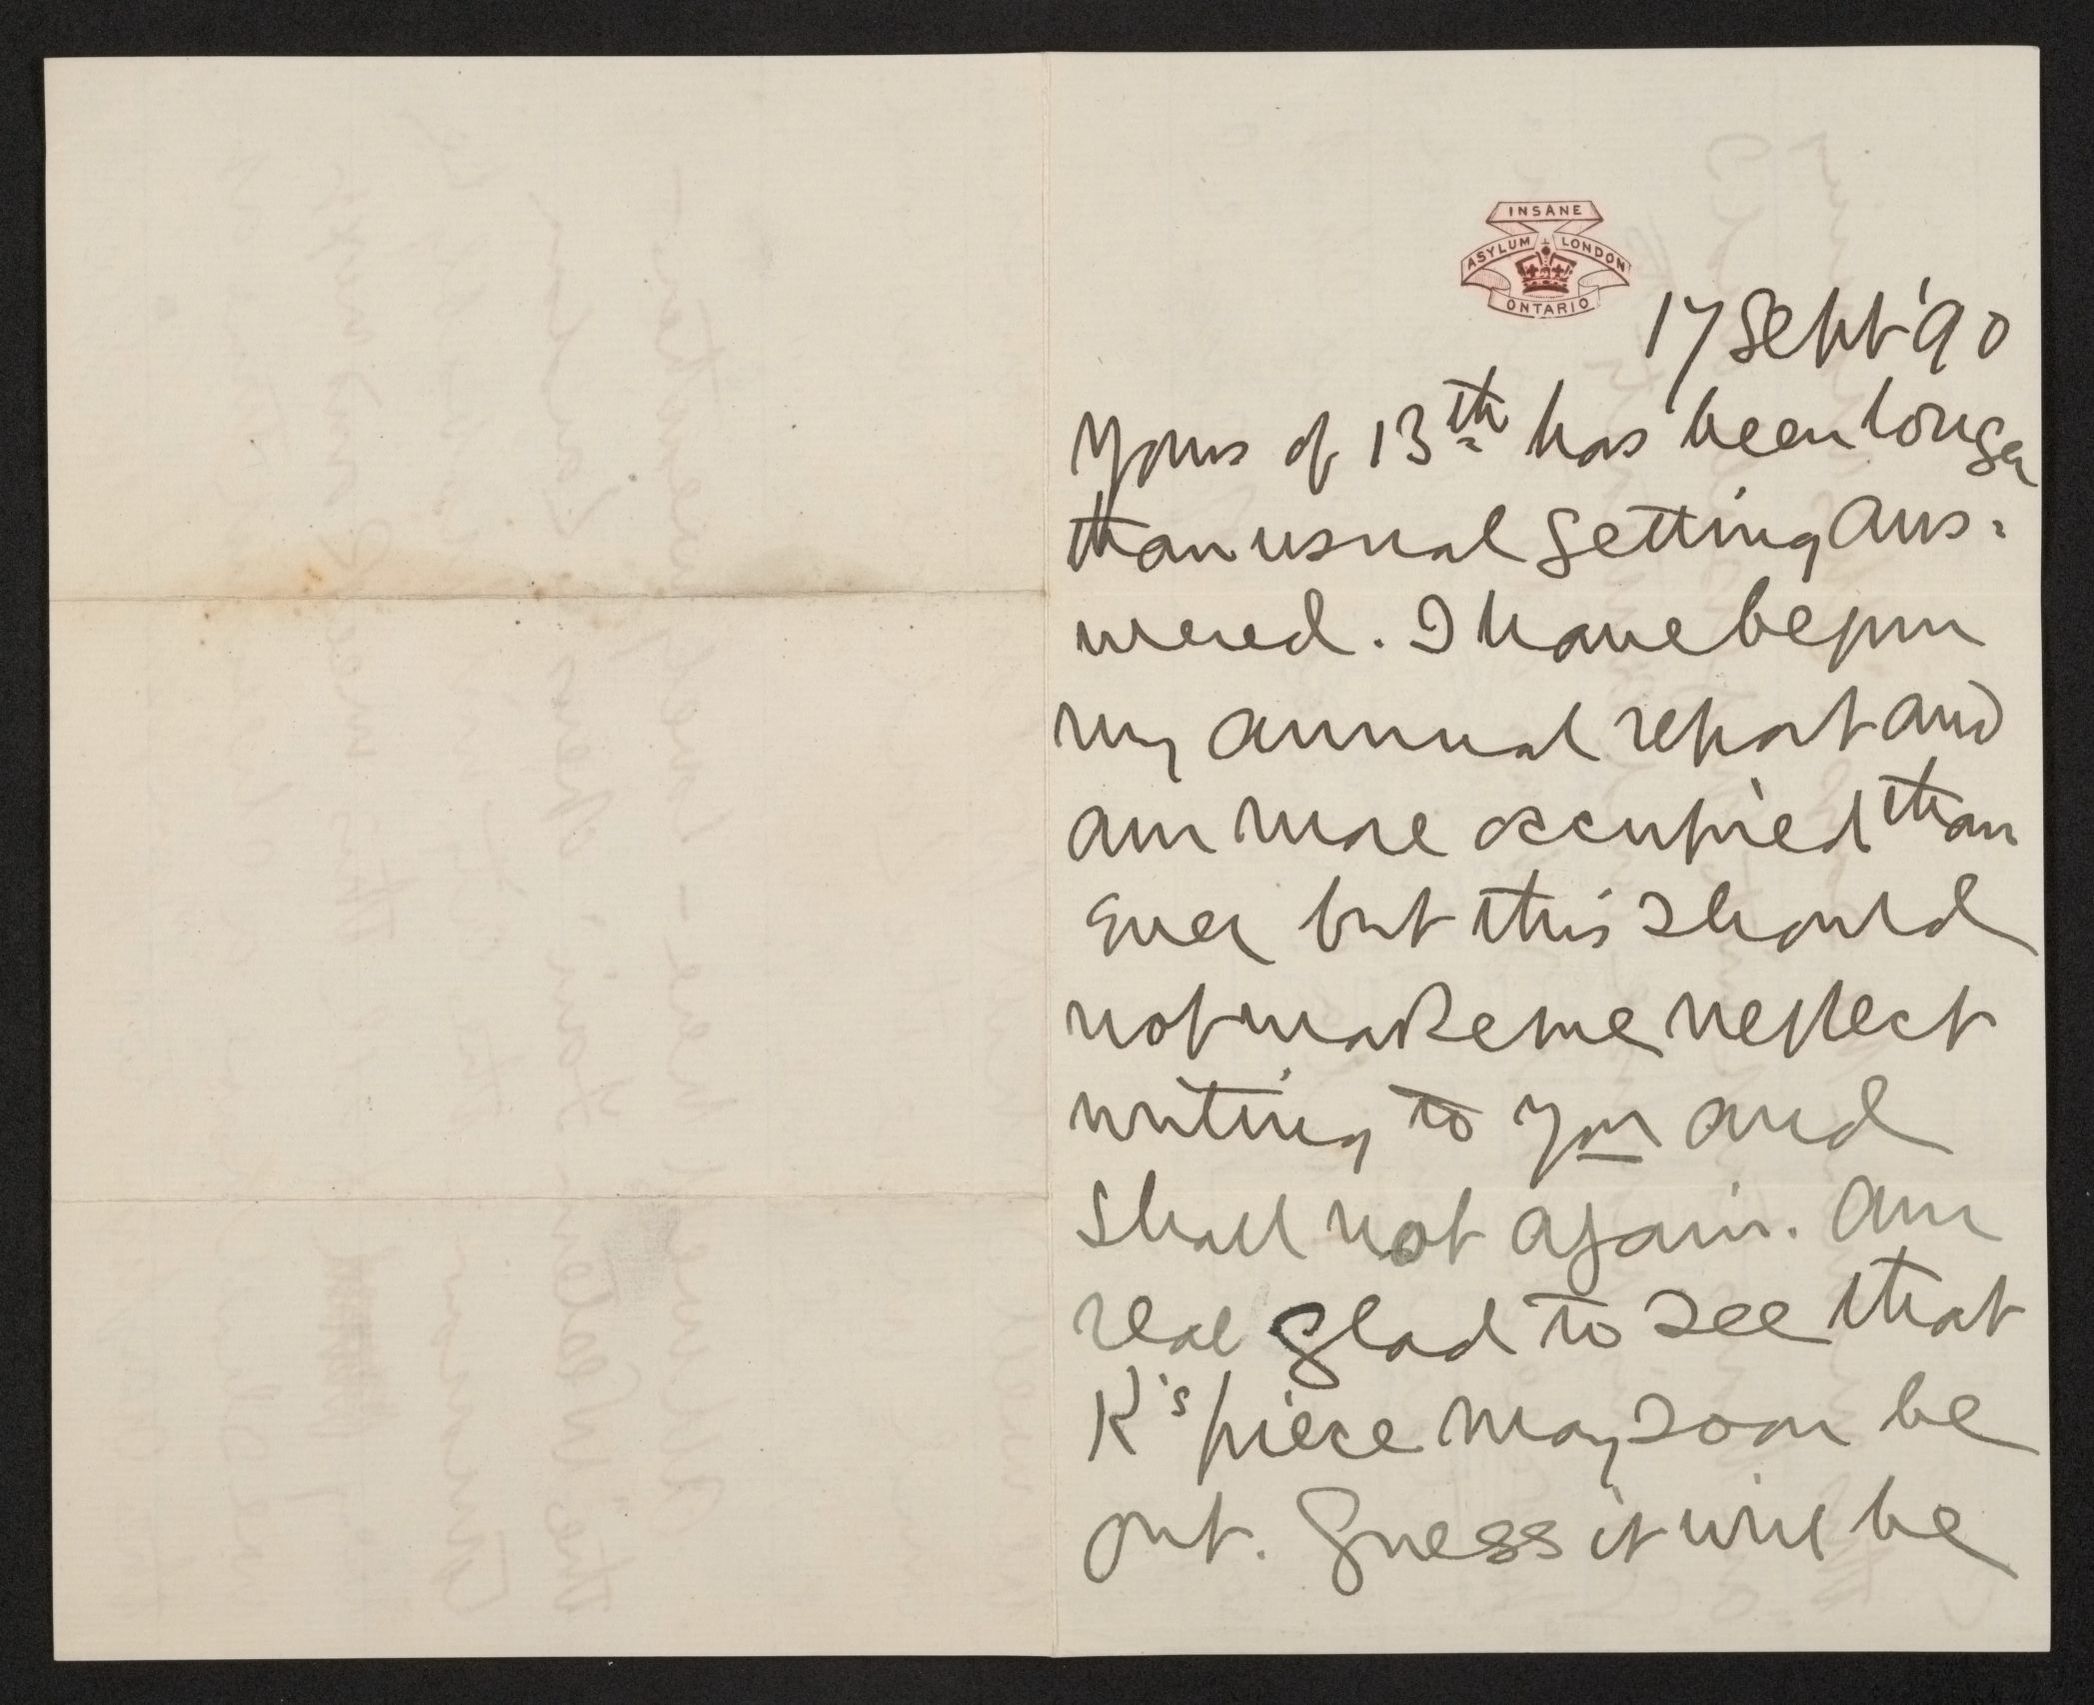 INSANE
ASYLUM LONDON
ONTARIO
17 Sept '90
Yours of 13th has been longer
than usual getting ans-
wered. I have begun
my annual report and
am more occupied than
ever but this should
not make me neglect
writing to you and
shall not again. Am
real glad to see that
K's piece may soon be
out. Guess it will be